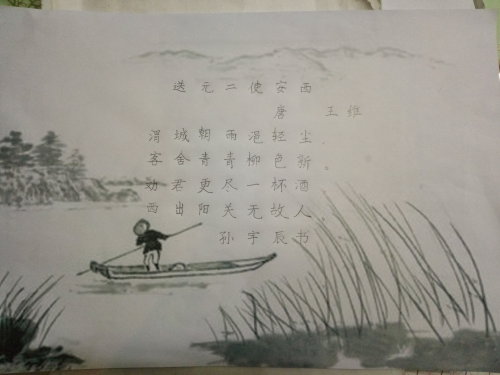 送元二使安西
唐 王维
渭城朝雨浥轻尘，
客舍青青柳色新。
劝君更尽一杯酒
西出阳关无故人
孙宇辰书